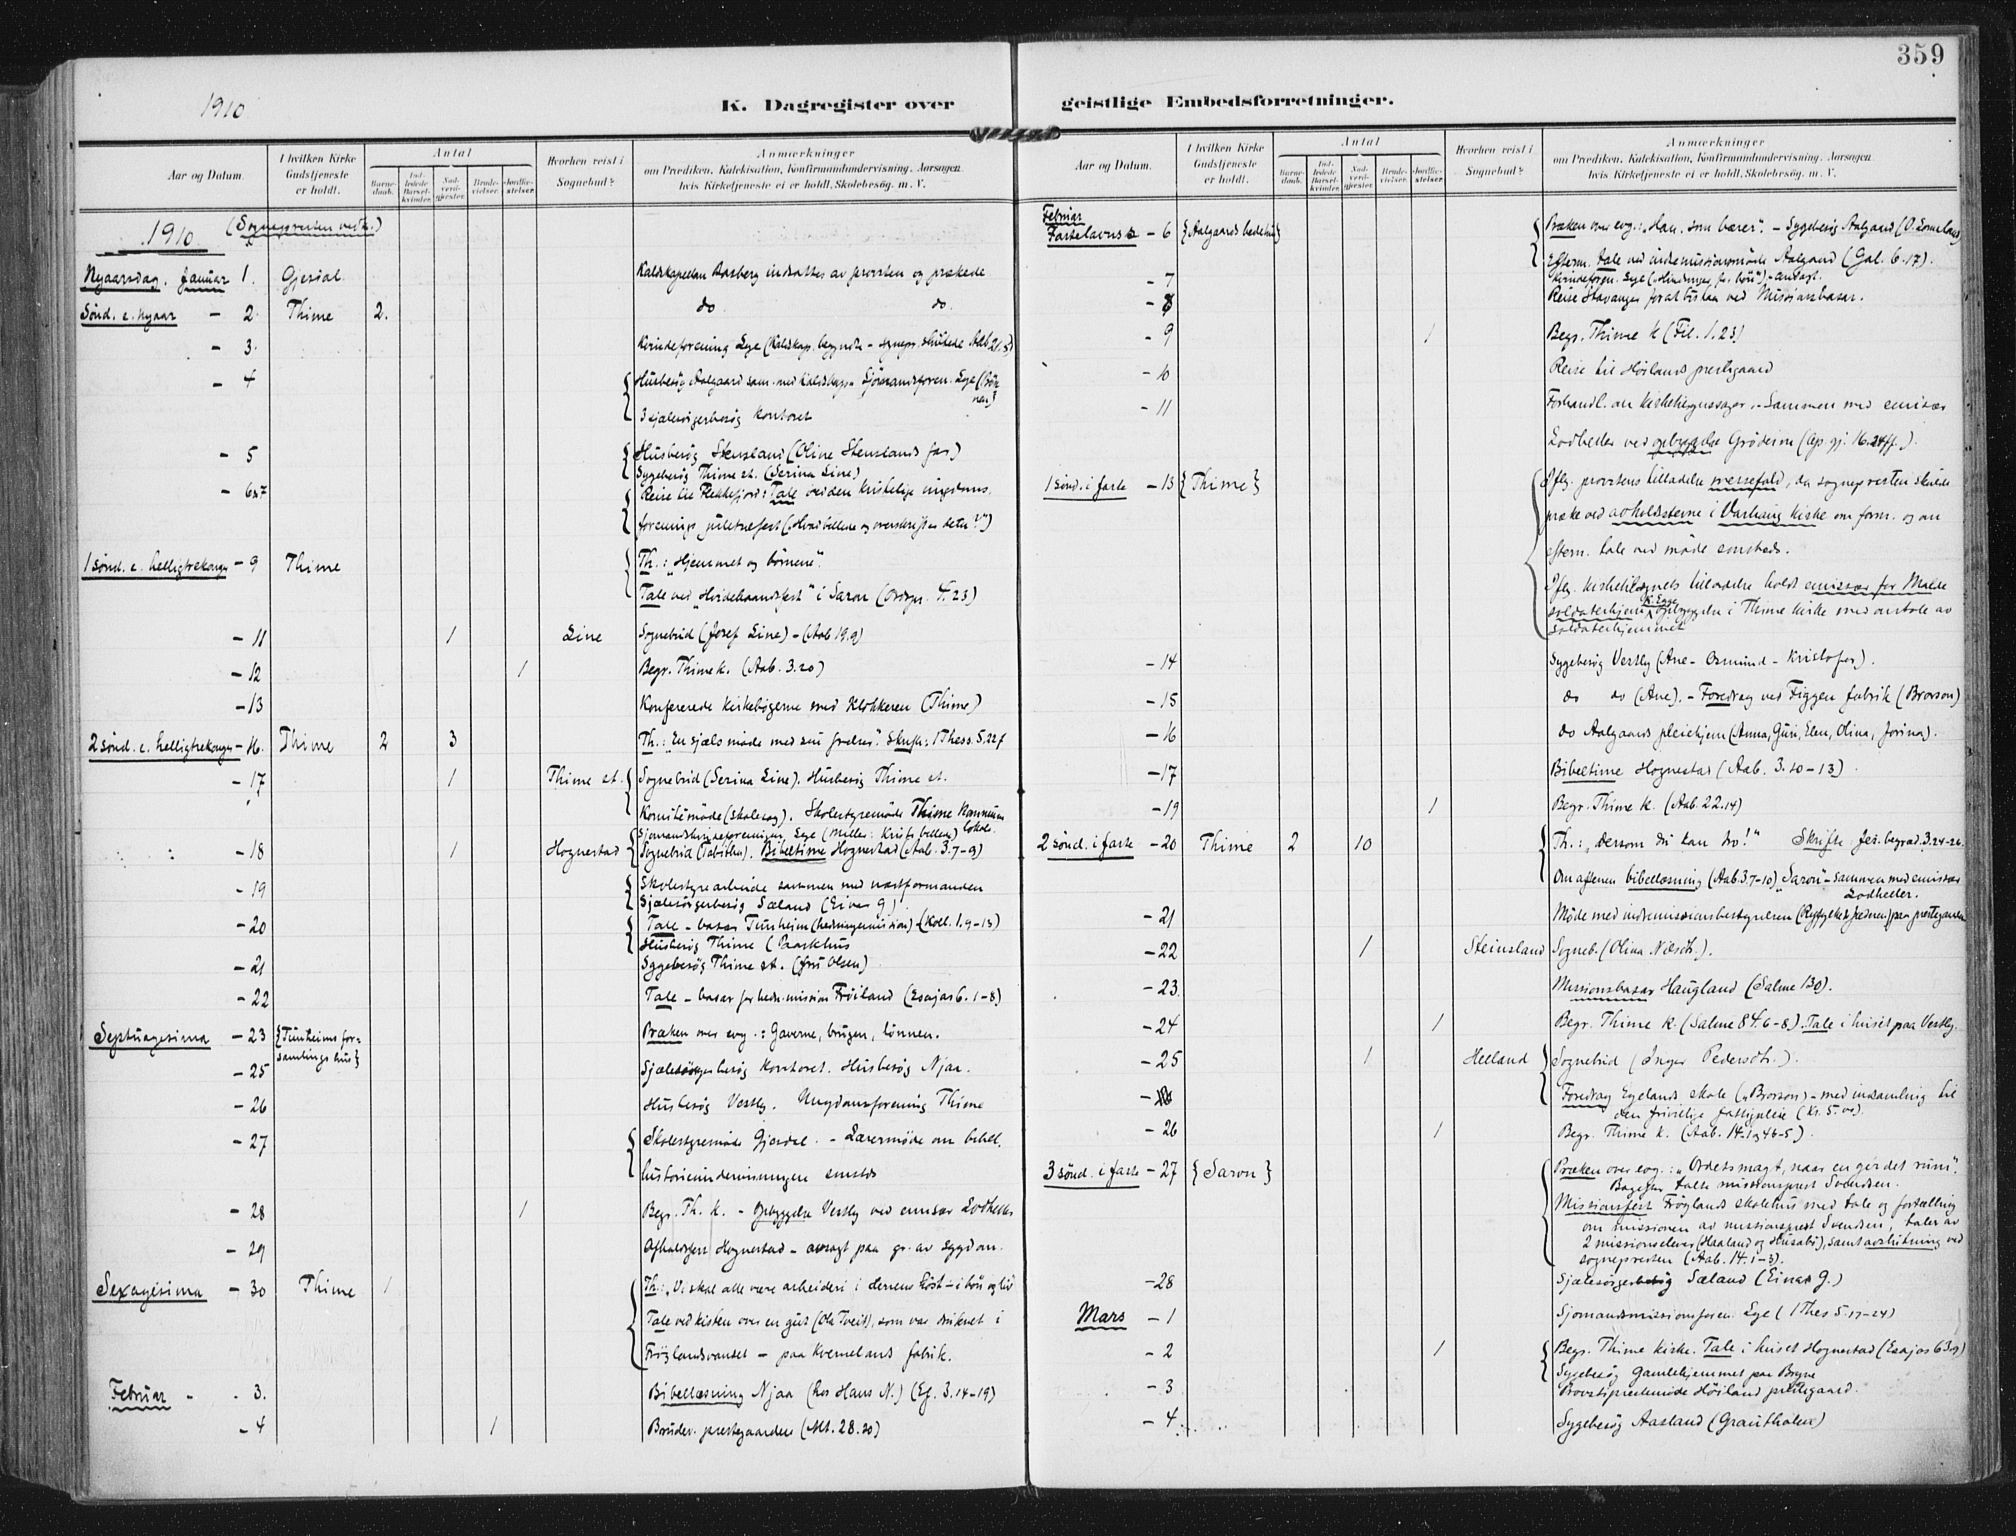 359
1910
K. Dagregister over geistlige Embedsforretninger.
Aar og Datum.
I hvilken Kirke Gudstjeneste er holdt.
Antal
Barnedaab.
Indledede Barselkvinder.
Nadverdgjester.
Brudevielser.
Jordfæstelser.
Hvorhen reist i Sognebud?
Anmærkninger
om Prædiken, Katekisation, Konfirmandundervisning, Aarsagen
hvis Kirketjeneste ei er holdt, Skolebesøg. m. V.
1910 (Sognepresten vedk.)
Nyaarsdag. Januar 1. Gjesdal Kaldskapellan Aasberg indsattes av provsten og prækede
Sønd. e. nyaar - 2. Thime 2. do do.
- 3. Kvindeforening Lye
- 4 Husbesøg Aalgaard sam. med Kaldskap. Sjømandsforen. Lye
3 sjælesørgerbesøg kontoret
- 5 Husbesøg Stensland (Oline Stenslands far)
Sygebesøg Thime st. (Serina Line)
- 6 Reise til Flekkefjord: Tale ved den kristelige ungdoms-
forenings juletræfest
1 sønd. e. helligtrekonger - 9 Thime Th.: "Hjemmet og børnene".
Tale ved "Hvidebaandsfest" i Saron
- 11 1 Line Sognebud (Josef Line) - (Aab 19.9)
- 12 1 Begr. Thime k. (Aab. 3.20)
- 13 Konfererede kirkebøgerne med Klokkeren (Thime)
2 sønd. e. helligtrekonger - 16. Thime 2 3 Th.: "En sjæls møde med sin frelser". Skrift: 1 Thess. 5,22f
- 17 1 Thime st. Sognebud (Serina Line). Husbesøg Thime st.
Komitemøde (skolesag). Skolestyremøde Thime Kommunelokale.
- 18 1 Hognestad Sognebud (Tabitha). Bibeltime Hognestad (Aab. 3.7-9)
- 19 Skolestyrearbeide sammen med næstformanden
Sjælesørgerbesøg Sæland (Einar G)
- 20 Tale - basar Tunheim (hedningemission) (Koll. 1.9-13)
Husbesøg Thime
- 21 Sygebesøg Thime st. (fru Olsen)
- 22 Tale - basar for hedn. mission Frøiland (Esajas 6. 1-8)
Septuagesima - 23 {Tunheims forsamlingshus} Præken over evg.: Gaverne, brugen, lønnen.
- 25 Sjælesørgerbesøg Kontoret. Husbesøg Njaa.
- 26 Husbesøg Vestly. Ungdomsforening Thime
- 27 Skolestyremøde Gjesdal. - Lærermøde om bibel.
historieundervisningen
- 28 1 Begr. Th. k. - Opbyggelse Vestly ved emisær Lodheller
- 29 Afholdsforen Hognestad - avsagt paa gr. av sygdom.
Sexagesima - 30 Thime 1 Th.: "Vi skal alle være arbeidere i Herrens høst - i bøn og liv
Tale ved kisten over en gut (Ola Tveit), som var druknet i
Frøylandsvandet - paa Kvernelands fabrik.
Februar - 3. Bibellæsning Njaa (hos Hans N.) (Ef. 3.14-19)
- 4 1 Brudev. prestegaarden (Mt. 28.20)
Februar
Fastelavns - 6 {Aalgaards bedehus} Præken over evg.: "Han, som bærer". - Sygebesøg Aalgaard
Efterm. tale ved indremissionsmøde Aalgaard (Gal. 6.17).
- 7
- 8 Reise Stavanger forat bistaa ved Missionsbasar.
- 9 1 Begr. Thime k (Fil. 1.23)
- 10 Reise til Høilands prestegaard
- 11 Forhandl. om kirkebygnssager. - Sammen med emisær
Lodheller ved opbyggelse Grødeim (Ap gj. 16.24ff.).
1 sønd. i faste - 13 {Thime} Iflg. provstens tilladelse messefald, da sognepresten skulde
præke ved avholdsstevne i Varhaug kirke om form. og om
efterm. tale ved møde sammesteds.
Iflg. kirketilsynets tilladelse holdt emisær for Malde
soldaterhjem K. Egge opbyggelse i Thime kirke med omtale av
soldaterhjemmet
- 14 Sygebesøg Vestly (Ane - Osmund - Kristofer).
- 15 do do (Ane). - Foredrag ved Figgen fabrik (Brorson)
- 16 do Aalgaards pleiehjem (Anna, Guri, Elen, Olina, Jorina).
- 17 Bibeltime Hognestad (Aab. 3.10-13)
- 19 1 Begr. Thime k. (Aab. 22.14)
2 sønd. i faste - 20 Thime 2 10 Th.: "Dersom du kan tro!" Skrifte Jer. begræd. 3.24-26.
Om aftenen bibellæsning (Aab. 3.7-10) "Saron" - sammen med emisær
Lodheller.
- 21 Møde med indremissionsbestyreren (Ryfylke & Jæderen) paa prestegaarden
- 22 1 Steinsland Sogneb. (Olina Nilsdt.).
- 23. Missionsbasar Haugland (Salme 130).
- 24 1 Begr. Thime k. (Salme 84.6-8). Tale i huset paa Vestly.
- 25 1 Helland Sognebud (Inger Pedersdt.).
Foredrag Egelands skole ("Brorson") - med indsamling til
den frivilige fattigpleie (Kr. 5.00).
- 26 1 Begr. Thime k.
3 sønd. i faste - 27 {Saron} Præken over evg.: "Ordets magt, naar en gir det rum".
Bagefter talte missionsprest Svendsen.
Missionsfest Frøylands skolehus med tale og fortælling
om missionen av missionsprest Svendsen, taler av
2 missionselever (Haaland og Husabø), samt avslutning ved
sognepresten (Aab. 14.1-3).
- 28 Sjælesørgerbesøg Sæland (Einar G.)
Mars - 1 Sjømandsmissionsforen. Lye (1 Thes 5.17-24)
- 2 1 Begr. Thime kirke. Tale i huset Hognestad (Esajas 63.9)
Sygebesøg Gamlehjemmet paa Bryne
- 3 Provstiprestemøde Høiland prestegaard.
- 4 Sygebesøg Aasland (Grautholen)